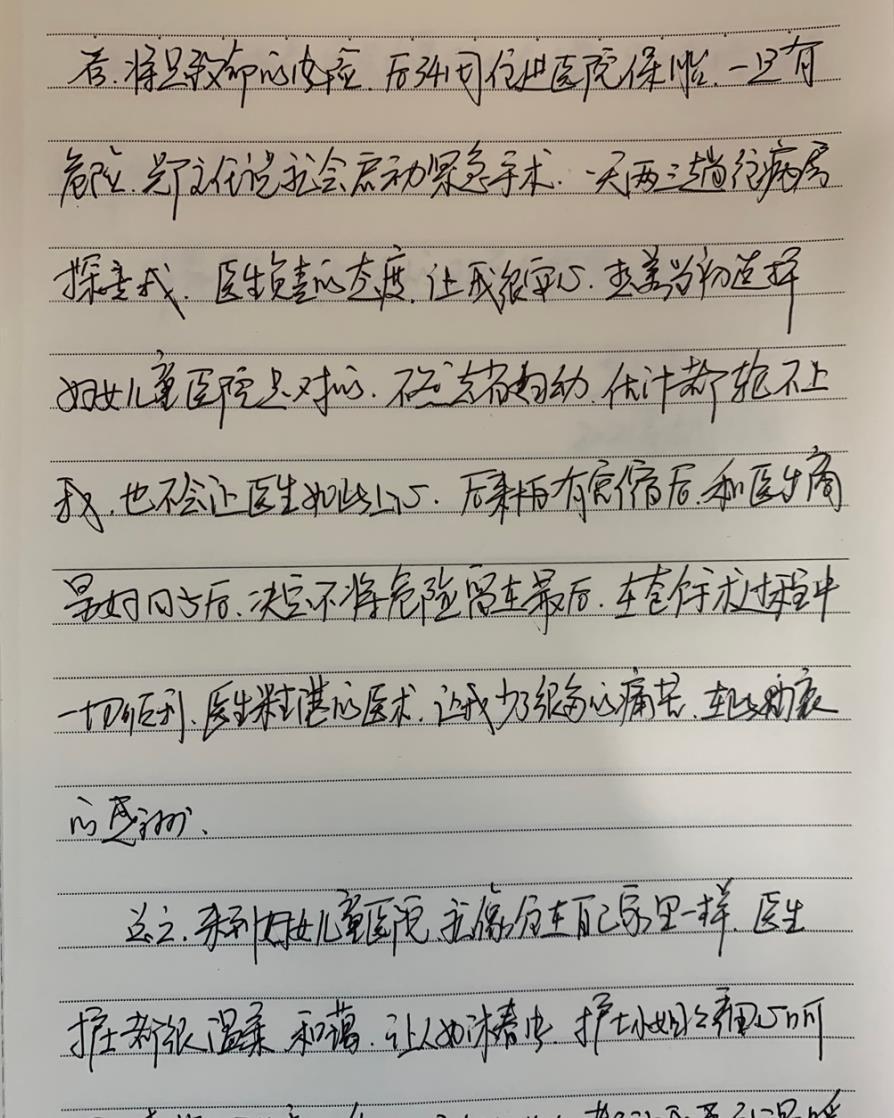 若,将是致命的危险,后34周住进医院保胎,一旦有
危险,郑主任说就会启动紧急手术,一天两三趟往病房
探查我,医生负责的态度,让我很安心,我当初选择
妇女儿童医院是对的,不然去省妇幼,估计都轮不上
我,也不会让医生如此上心,后来有宫缩后,和医生商
量好日子后,决定不将危险留在最后,在整个手术过程中
一切顺利,医生精湛的医术,让我少了很多的痛苦,在此衷
的感谢、
总之,来到妇女儿童医院,就像住在自己家里一样,医生
护士都很温柔 和蔼,让人如沐春风,护士小姐